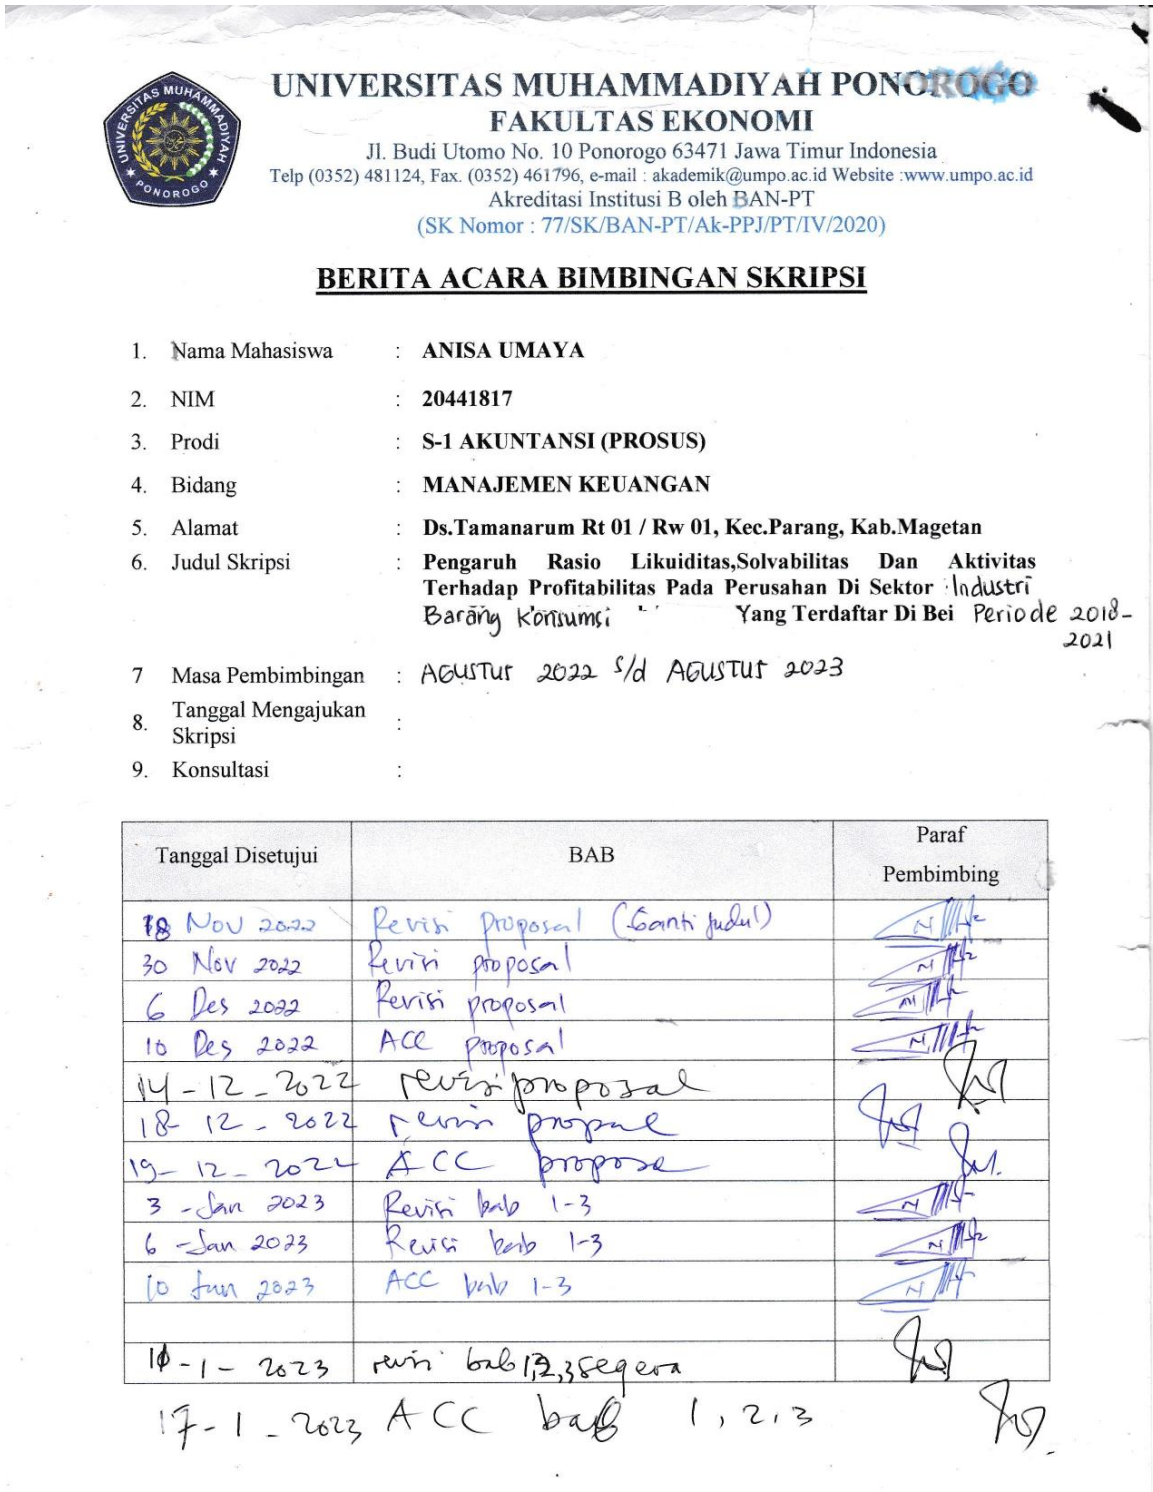 UNIVERSITAS MUHAMMADIYAH PONOROGO
UNIVERSITAS MUHAMMADIYAH PONOROGO
FAKULTAS EKONOMI
Jl. Budi Utomo No. 10 Ponorogo 63471 Jawa Timur Indonesia
Telp (0352) 481124, Fax. (0352) 461796, e-mail : akademik@umpo.ac.id Website :www.umpo.ac.id
Akreditasi Institusi B oleh BAN-PT
(SK Nomor : 77/SK/BAN-PT/Ak-PPJ/PT/IV/2020)
BERITA ACARA BIMBINGAN SKRIPSI
1. Nama Mahasiswa : ANISA UMAYA
2. NIM : 20441817
3. Prodi : S-1 AKUNTANSI (PROSUS)
4. Bidang : MANAJEMEN KEUANGAN
5. Alamat : Ds.Tamanarum Rt 01 / Rw 01, Kec.Parang, Kab.Magetan
6. Judul Skripsi : Pengaruh Rasio Likuiditas,Solvabilitas Dan Aktivitas
Terhadap Profitabilitas Pada Perusahan Di Sektor Industri
Barang Konsumsi Yang Terdaftar Di Bei Periode 2018-
2021
7 Masa Pembimbingan : AGUSTUS 2022 s/d AGUSTUS 2023
8. Tanggal Mengajukan Skripsi :
9. Konsultasi :
Tanggal Disetujui BAB Paraf Pembimbing
18 Nov 2022 Revisi proposal (Ganti judul)
30 Nov 2022 Revisi proposal
6 Des 2022 Revisi proposal
10 Des 2022 ACC proposal
14-12-2022 revisi proposal
18-12-2022 revisi
19-12-2022 ACC
3 -Jan 2023 Revisi bab 1-3
6 -Jan 2023 Revisi bab 1-3
10 Jan 2023 ACC bab 1-3
-1-2023 revisi bab 1,2,3 segera
17-1-2023 ACC bab 1,2,3